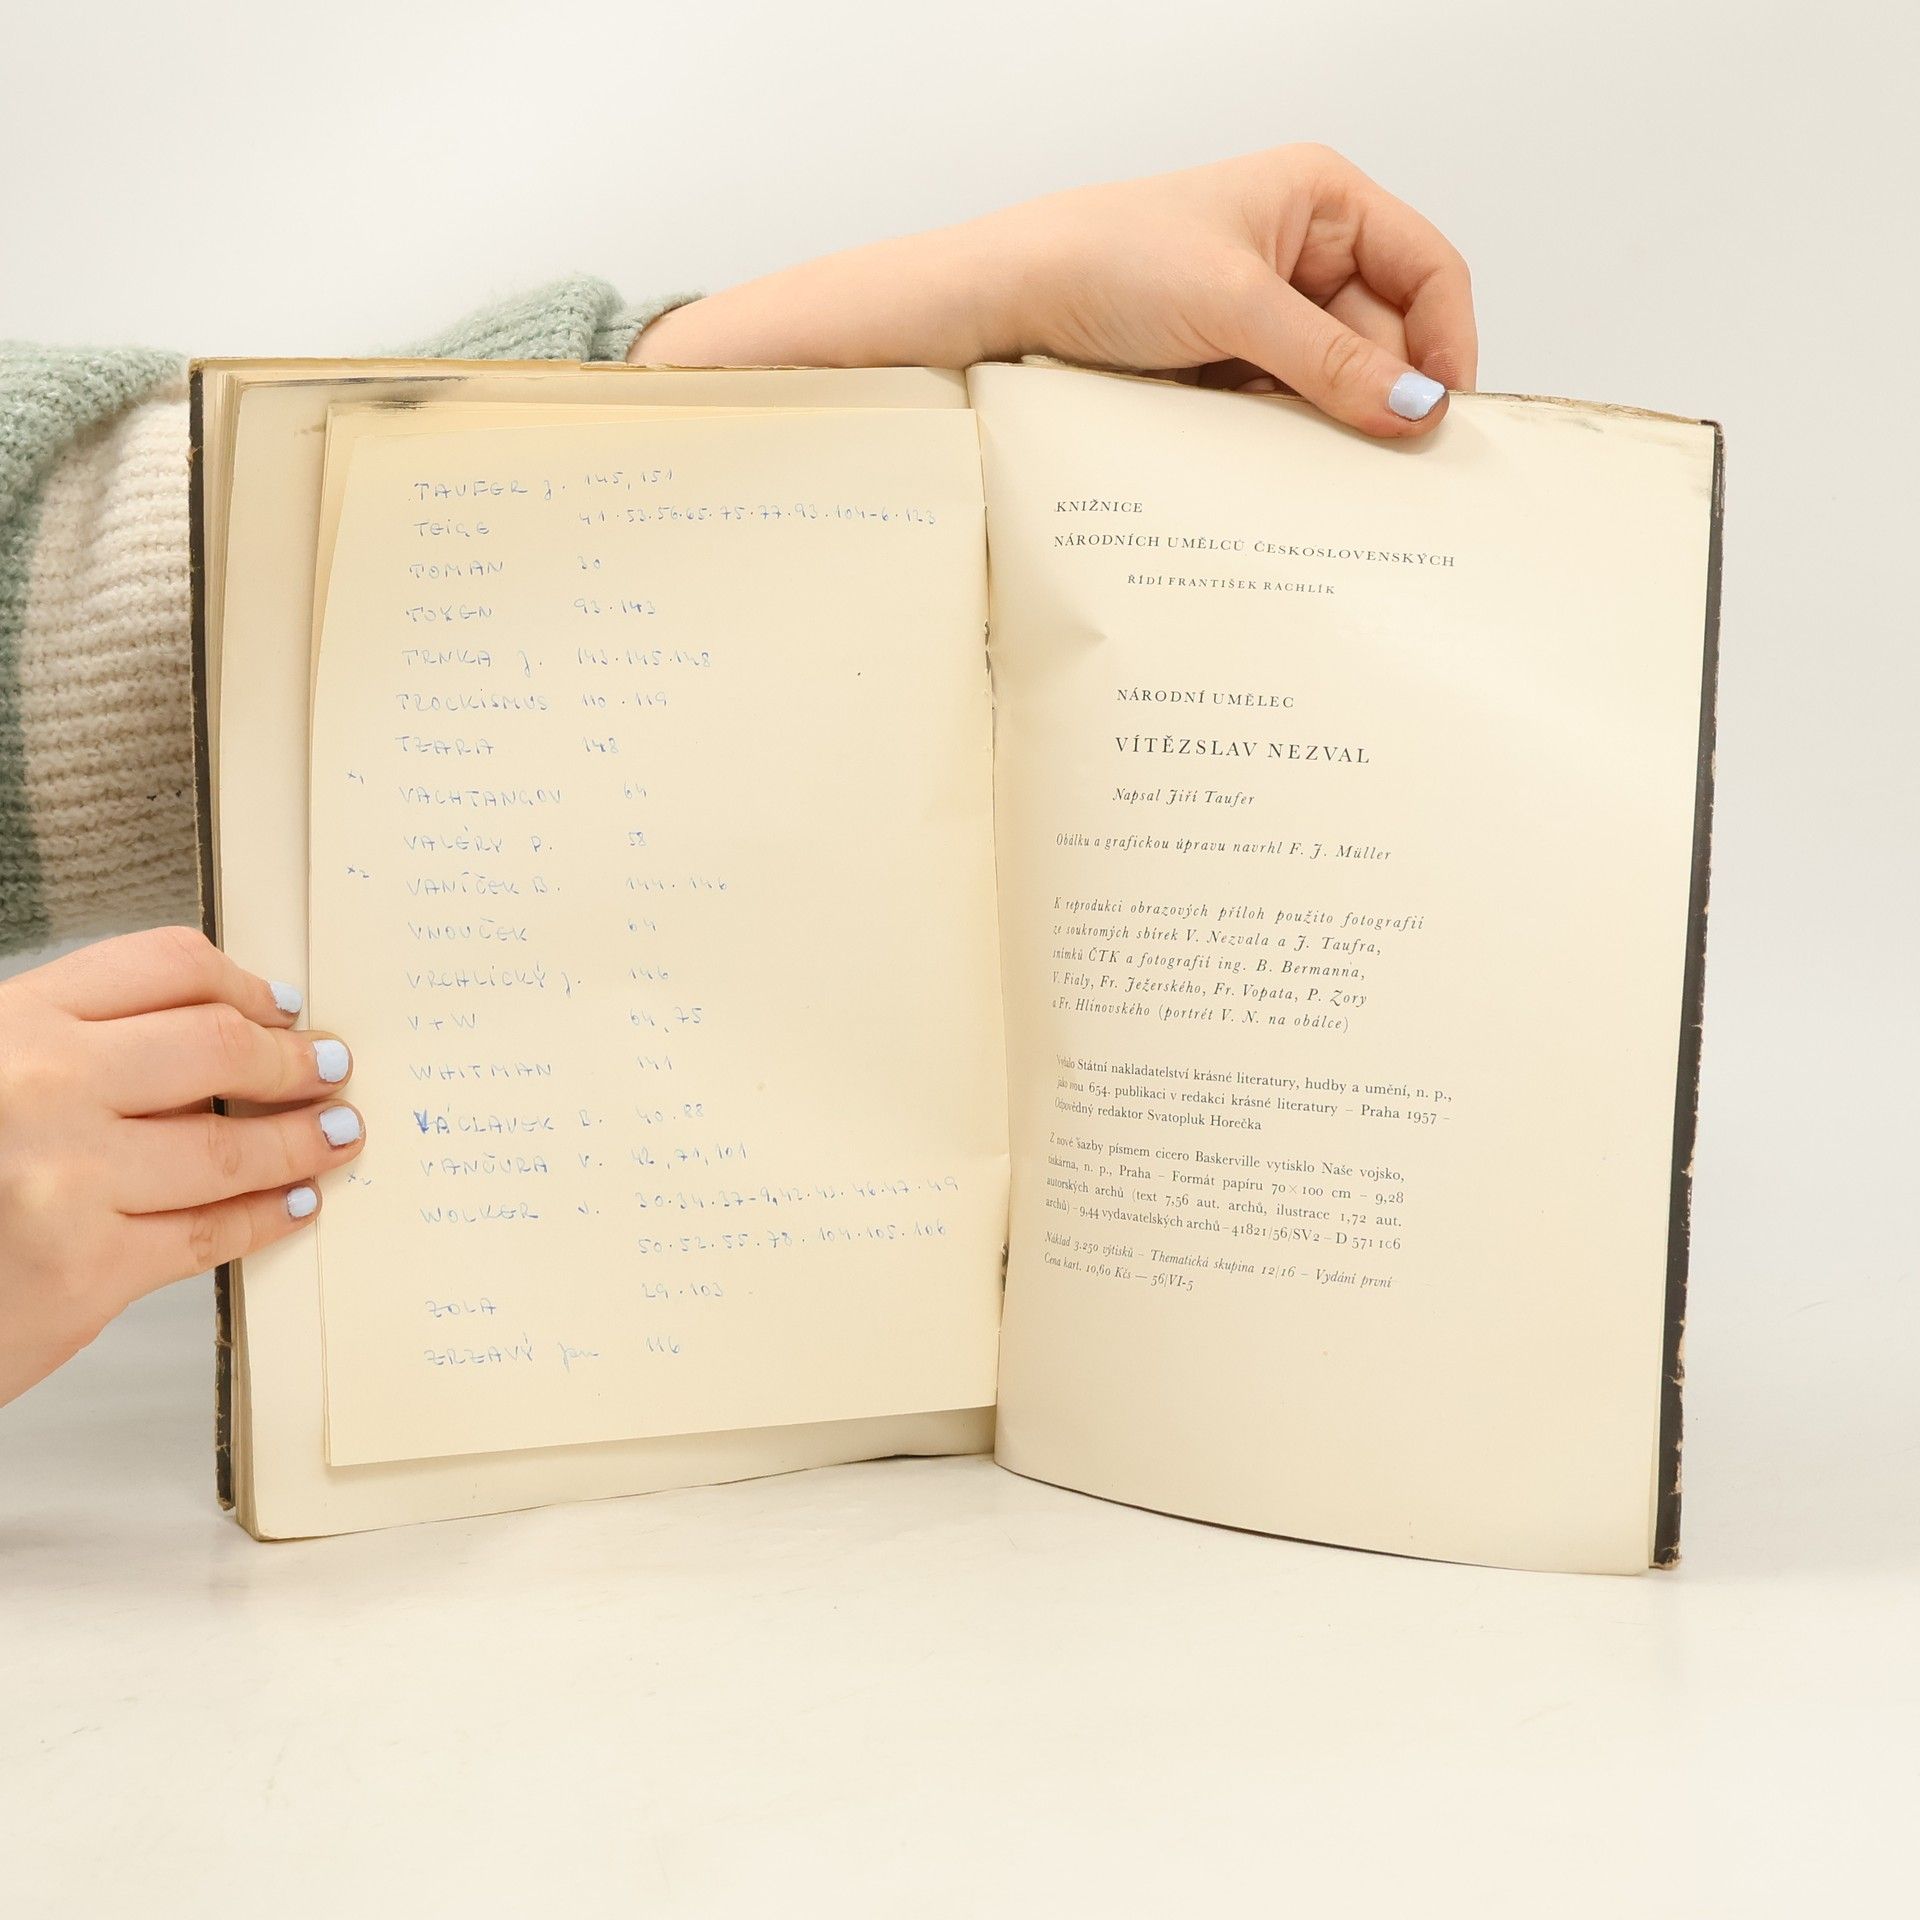 TAUFER J. 145, 151
TEIGE 41·53·56·65·75·77·93·104-6·123
TOMAN 30
TOYEN 93·143
TRNKA J. 143·145·148
TROCKISMUS 110·119
TZARA 148
x1
VACHTANGOV 64
VALÉRY P. 58
x2
VANÍČEK B. 144·146
VNOUČEK 64
VRCHLICKÝ J. 146
V+W 64, 75
WHITMAN 141
VÁCLAVEK B. 40·88
VANČURA V. 42, 71, 101
x2
WOLKER J. 30·34·37-9,42·43·46·47·49
50·52·55·78·104·105·106
ZOLA 29·103
ZRZAVÝ Jan 116
KNIŽNICE
NÁRODNÍCH UMĚLCŮ ČESKOSLOVENSKÝCH
ŘÍDÍ FRANTIŠEK RACHLÍK
NÁRODNÍ UMĚLEC
VÍTĚZSLAV NEZVAL
Napsal Jiří Taufer
Obálku a grafickou úpravu navrhl F. J. Müller
K reprodukci obrazových příloh použito fotografií
ze soukromých sbírek V. Nezvala a J. Taufra,
snímků ČTK a fotografií ing. B. Bermanna,
V. Fialy, Fr. Ježerského, Fr. Vopata, P. Zory
a Fr. Hlínovského (portrét V. N. na obálce)
Vydalo Státní nakladatelství krásné literatury, hudby a umění, n. p.,
jako svou 654. publikaci v redakci krásné literatury – Praha 1957 –
Odpovědný redaktor Svatopluk Horečka
Z nové sazby písmem cicero Baskerville vytisklo Naše vojsko,
tiskárna, n. p., Praha – Formát papíru 70×100 cm – 9,28
autorských archů (text 7,56 aut. archů, ilustrace 1,72 aut.
archů) – 9,44 vydavatelských archů – 41821/56/SV2 – D 571 106
Náklad 3.250 výtisků – Thematická skupina 12/16 – Vydání první
Cena kart. 10,60 Kčs — 56/VI-5